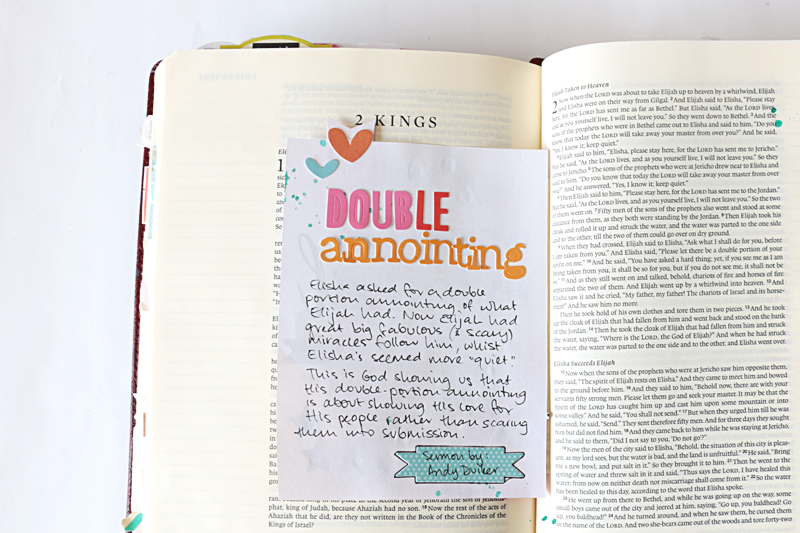 2 KINGS
DOUBLE
annointing
Elisha asked for a double
portion annointing of what
Elijah had. Now Elijah had
great big fabulous (& scary)
miracles follow him, whilst
Elisha's seemed more "quiet."
This is God showing us that
His double-portion annointing
is about showing His love for
His people rather than scaring
them into submission.
Sermon by:
Andy
phat, king of Judah, because Ahaziah had no son. 18 Now the rest of the acts of
Ahaziah that he did, are they not written in the Book of the Chronicles of the
Kings of Israel?
Elijah Taken to Heaven
2 Now when the LORD was about to take Elijah up to heaven by a whirlwind, Elijah
and Elisha were on their way from Gilgal. 2 And Elijah said to Elisha, "Please stay
here, for the LORD has sent me as far as Bethel." But Elisha said, "As the LORD lives,
and as you yourself live, I will not leave you." So they went down to Bethel. 3 And the
sons of the prophets who were in Bethel came out to Elisha and said to him, "Do you
know that today the LORD will take away your master from over you?" And he said,
"Yes, I know it; keep quiet."
4 Elijah said to him, "Elisha, please stay here, for the LORD has sent me to Jericho."
But he said, "As the LORD lives, and as you yourself live, I will not leave you." So they
came to Jericho. 5 The sons of the prophets who were at Jericho drew near to Elisha and
said to him, "Do you know that today the LORD will take away your master from over
you?" And he answered, "Yes, I know it; keep quiet."
6 Then Elijah said to him, "Please stay here, for the LORD has sent me to the Jordan."
But he said, "As the LORD lives, and as you yourself live, I will not leave you." So the two
of them went on. 7 Fifty men of the sons of the prophets also went and stood at some
distance from them, as they both were standing by the Jordan. 8 Then Elijah took his
cloak and rolled it up and struck the water, and the water was parted to the one side
and to the other, till the two of them could go over on dry ground.
9 When they had crossed, Elijah said to Elisha, "Ask what I shall do for you, before
I am taken from you." And Elisha said, "Please let there be a double portion of your
spirit on me." 10 And he said, "You have asked a hard thing; yet, if you see me as I am
being taken from you, it shall be so for you, but if you do not see me, it shall not be
so." 11 And as they still went on and talked, behold, chariots of fire and horses of fire
separated the two of them. And Elijah went up by a whirlwind into heaven. 12 And
Elisha saw it and he cried, "My father, my father! The chariots of Israel and its horse-
men!" And he saw him no more.
Then he took hold of his own clothes and tore them in two pieces. 13 And he took
up the cloak of Elijah that had fallen from him and went back and stood on the bank
of the Jordan. 14 Then he took the cloak of Elijah that had fallen from him and struck
the water, saying, "Where is the LORD, the God of Elijah?" And when he had struck
the water, the water was parted to the one side and to the other, and Elisha went over.
Elisha Succeeds Elijah
15 Now when the sons of the prophets who were at Jericho saw him opposite them,
they said, "The spirit of Elijah rests on Elisha." And they came to meet him and bowed
to the ground before him. 16 And they said to him, "Behold now, there are with your
servants fifty strong men. Please let them go and seek your master. It may be that the
Spirit of the LORD has caught him up and cast him upon some mountain or into
some valley." And he said, "You shall not send." 17 But when they urged him till he was
ashamed, he said, "Send." They sent therefore fifty men. And for three days they sought
him but did not find him. 18 And they came back to him while he was staying at Jericho,
and he said to them, "Did I not say to you, 'Do not go'?"
19 Now the men of the city said to Elisha, "Behold, the situation of this city is pleas-
ant, as my lord sees, but the water is bad, and the land is unfruitful." 20 He said, "Bring
me a new bowl, and put salt in it." So they brought it to him. 21 Then he went to the
spring of water and threw salt in it and said, "Thus says the LORD, I have healed this
water; from now on neither death nor miscarriage shall come from it." 22 So the water
has been healed to this day, according to the word that Elisha spoke.
23 He went up from there to Bethel, and while he was going up on the way, some
small boys came out of the city and jeered at him, saying, "Go up, you baldhead! Go
up, you baldhead!" 24 And he turned around, and when he saw them, he cursed them
in the name of the LORD. And two she-bears came out of the woods and tore forty-two